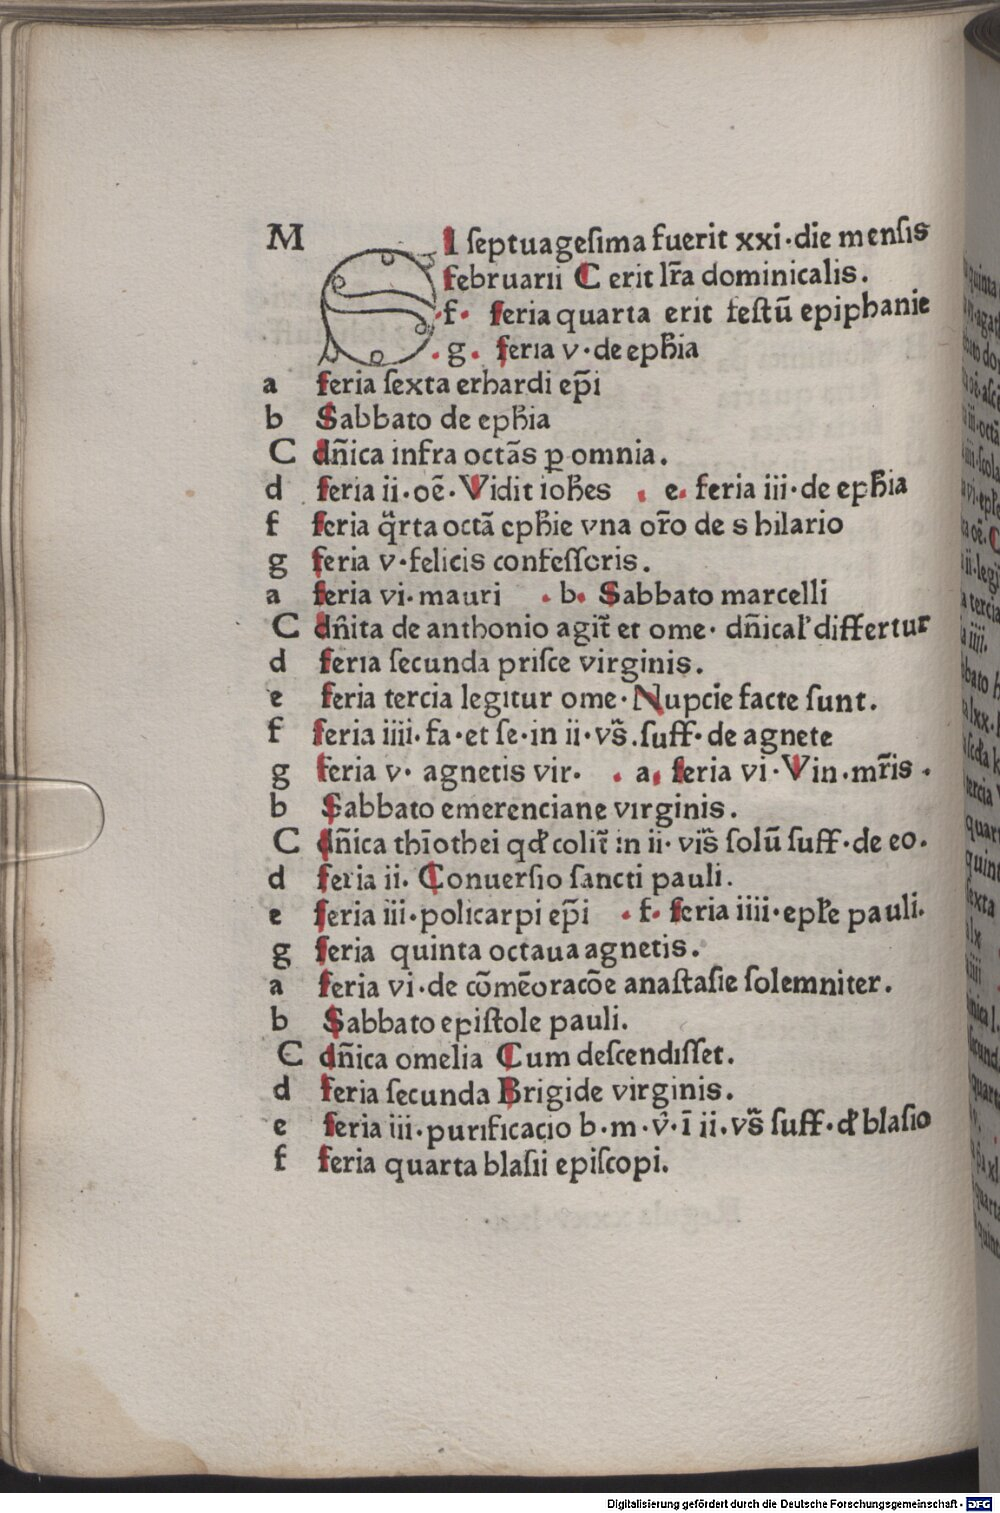 M SI ſeptuageſima fuerit xxi·die menſis
februarii C erit lr̄a dominicalis.
·f· feria quarta erit feſtū epiphanie
·g· feria v·de epħia
a feria ſexta erhardi ep̄i
b Sabbato de epħia
C dn̄ica infra octās ꝑ omnia.
d feria ii·oē·Vidit ioħes · e· feria iii·de epħia
f feria q̈rta octā epħie vna or̄o de s hilario
g feria v·felicis confeſſoris.
a feria vi·mauri ·b· Sabbato marcelli
C dn̄ita de anthonio agit̄ et ome· dn̄ical' differtur
d feria ſecunda priſce virginis.
e feria tercia legitur ome·Nupcie facte ſunt.
f feria iiii·fa·et ſe·in ii·vs̄.ſuff·de agnete
g feria v· agnetis vir· ·a· feria vi·Vin·mr̄is.
b Sabbato emerenciane virginis.
C dn̄ica thīothei qď colit̄ in ii·vis̄ ſolū ſuff·de eo.
d feria ii. Conuerſio ſancti pauli.
e feria iii·policarpi ep̄i ·f· feria iiii·epl̄e pauli.
g feria quinta octaua agnetis.
a feria vi·de cōmēoracōe anaſtaſie ſolemniter.
b Sabbato epiſtole pauli.
C dn̄ica omelia Cum deſcendiſſet.
d feria ſecunda Brigide virginis.
e feria iii·purificacio b·m·v̂·ī ii.vs̄ ſuff·ď blaſio
f feria quarta blaſii epiſcopi.
Digitalisierung gefördert durch die Deutsche Forschungsgemeinschaft · DFG